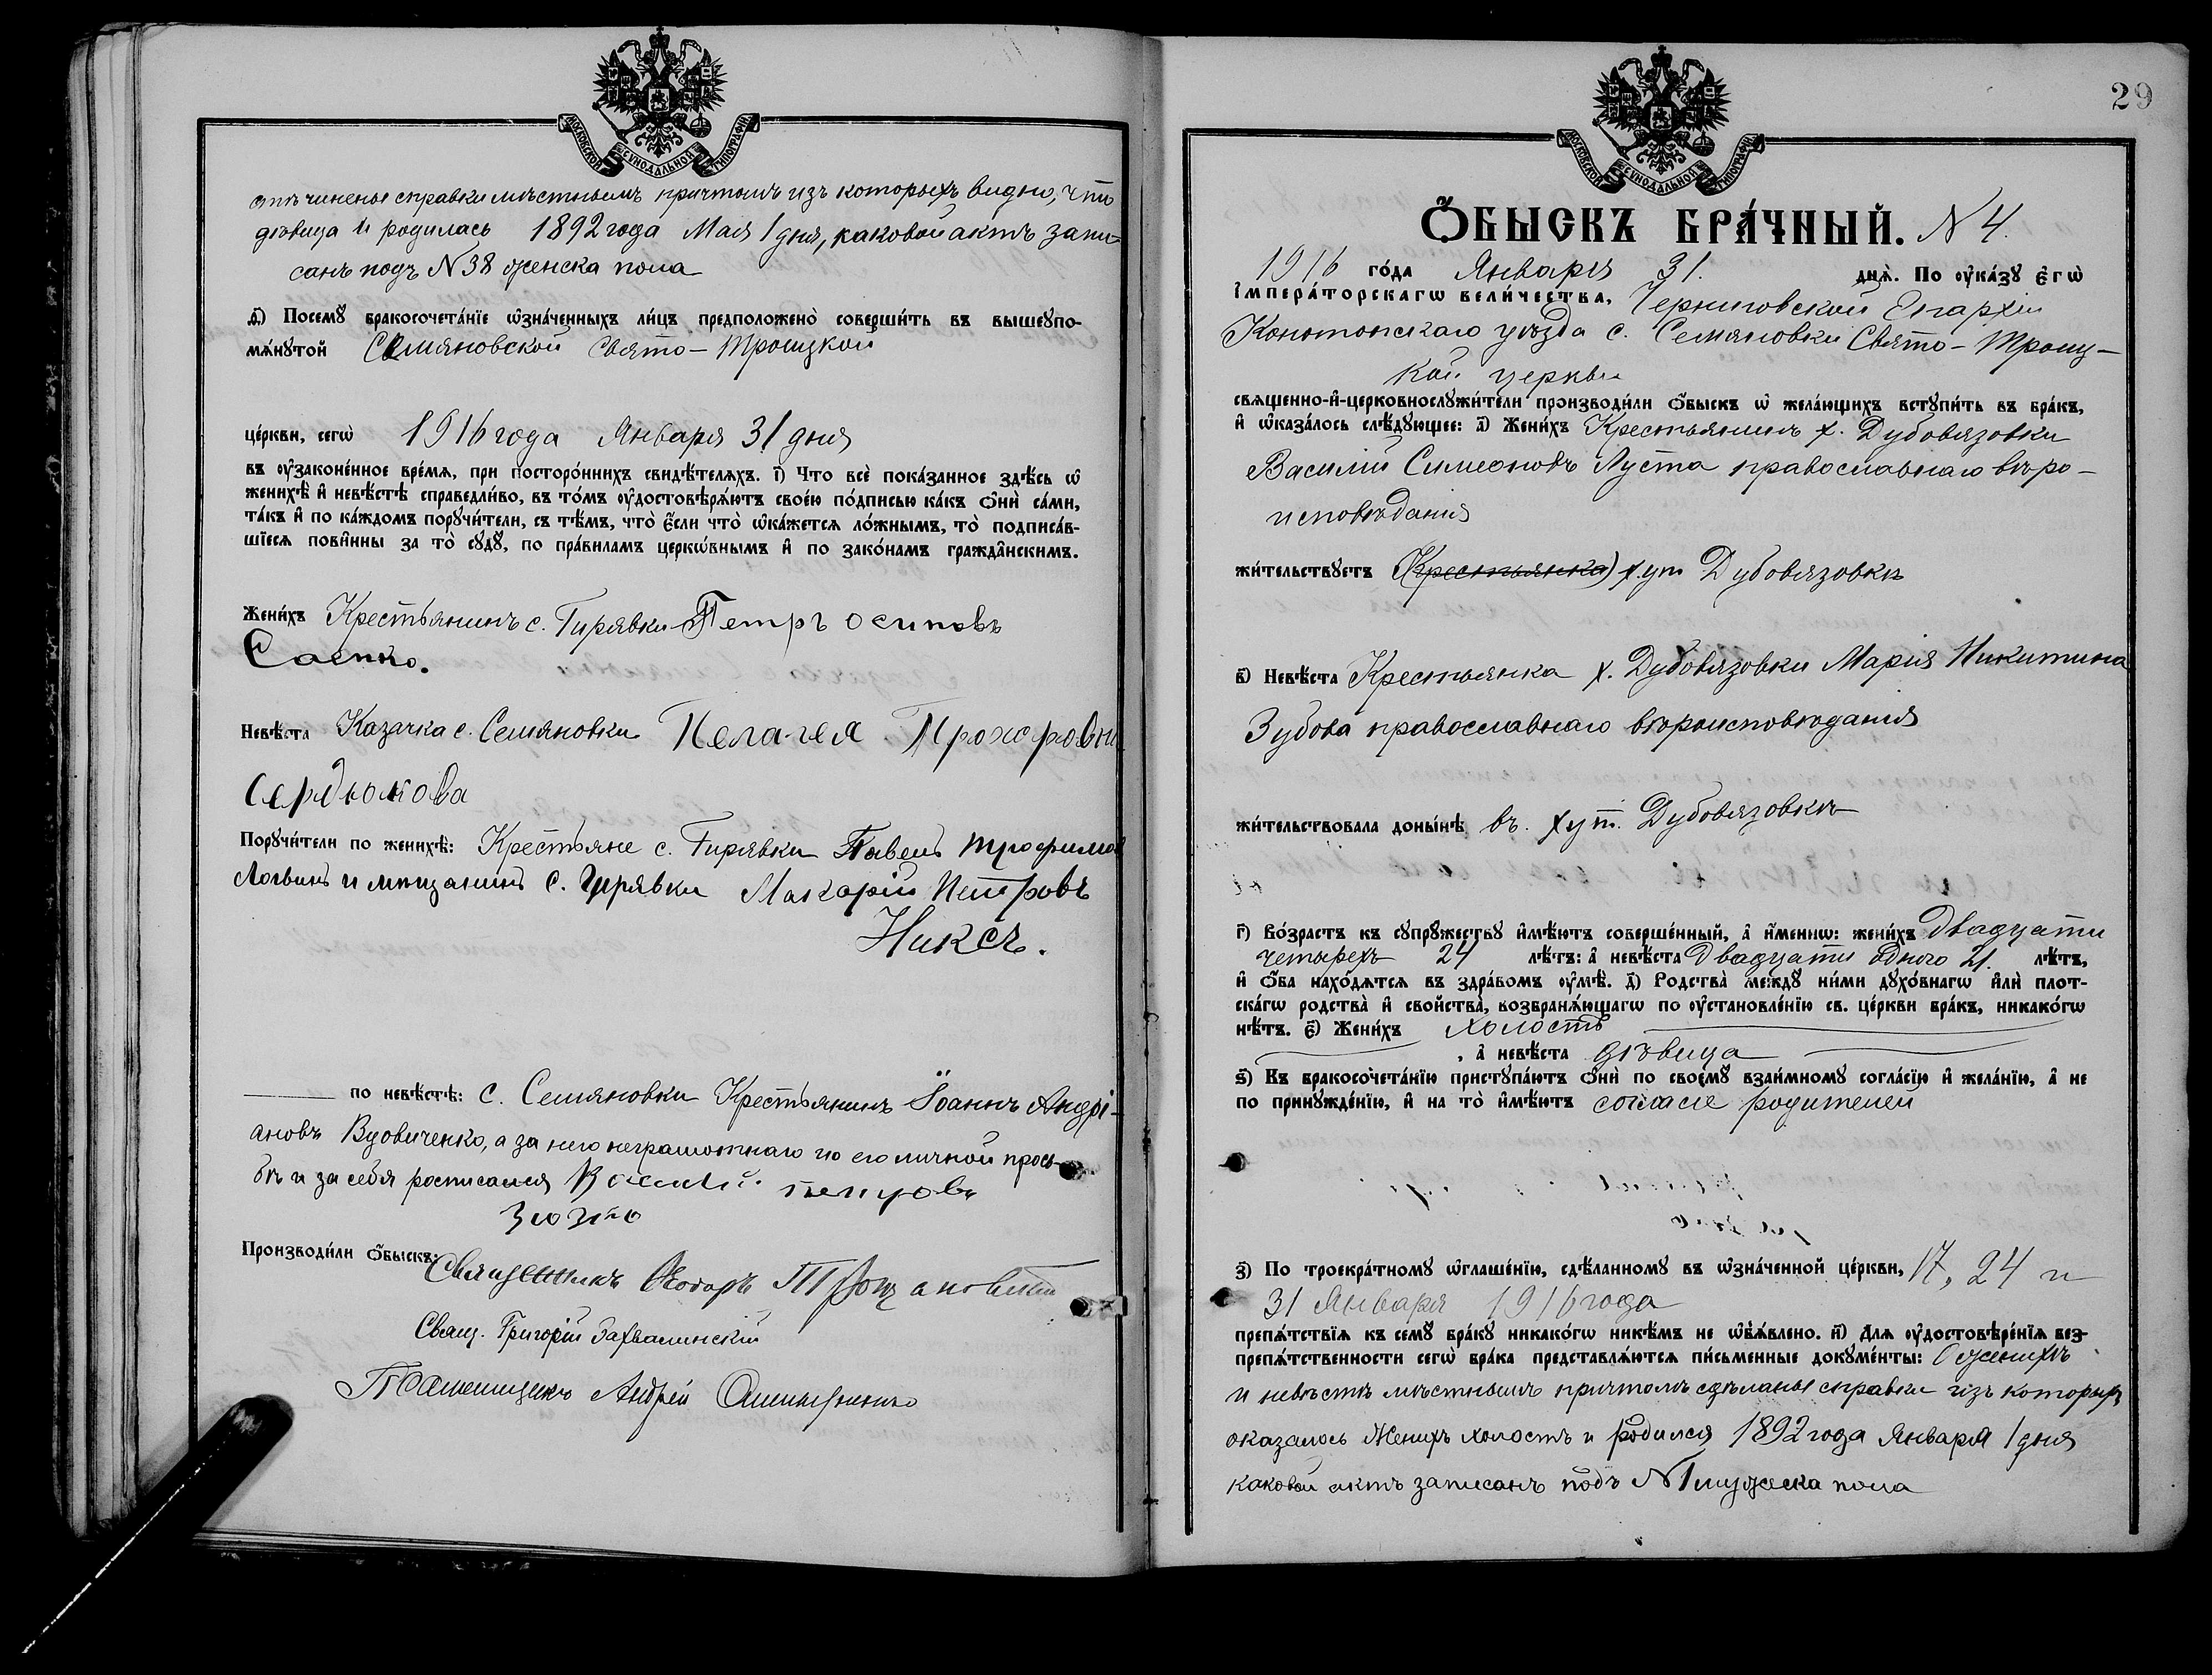 МОСКОВСКОЙ СѴНОДАЛЬНОЙ ТИПОГРАФІИ
учинены справки мѣстнымъ причтомъ изъ которыхъ видно, что
дѣвица и родилась 1892 года Мая 1 дня, каковой актъ запи-
санъ подъ N 38 женска пола
д҃і) Посемꙋ̀ бракосочета́нїе ѡ҆зна́ченныхъ ли́цъ предположено̀ соверши́ть въ вышеꙋпо-
мѧ́нꙋтой Семяновской Свято-Троицкой
це́ркви, сегѡ̀ 1916 года Января 31 дня
въ ᲂу҆законе́нное вре́мѧ, при посторо́ннихъ свидѣ́телѧхъ. і҃) Что всѐ пока́занное здѣ́сь ѡ҆
женихѣ̀ и҆ невѣ́стѣ справедли́во, въ то́мъ ᲂу҆достовѣрѧ́ютъ свое́ю по́дписью ка́къ ѻ҆нѝ са́ми,
та́къ и҆ по ка́ждомъ порꙋчи́тели, съ тѣ́мъ, что̀ є҆́сли что̀ ѡ҆ка́жетсѧ ло́жнымъ, то̀ подписа́в-
шїесѧ пови́нны за то̀ сꙋдꙋ̀, по пра́виламъ церкѡ́внымъ и҆ по зако́намъ гражда́нскимъ.
Жени́хъ Крестьянинъ с. Гирявки Петръ Осиповъ
Саенко.
Невѣ́ста Казачка с. Семяновки Пелагея Прохоровна
Сердюкова
Порꙋчи́тели по женихѣ̀: Крестьяне с. Гирявки Павелъ Трофимов
Логвинъ и мещанинъ с. Гирявки Макарій Петровъ
Никсъ.
по невѣ́стѣ: с. Семяновки Крестьянинъ Іоаннъ Андрі-
ановъ Вдовиченко, а за него неграмотнаго по его личной прось-
бѣ и за себя росписался Василій
Производи́ли ѻ҆́быскъ:
Священникъ Ѳеодоръ
Свящ. Григорій Захвалинскій
Псаломщикъ Андрей
29
МОСКОВСКОЙ СѴНОДАЛЬНОЙ ТИПОГРАФІИ
Ѻ҆́БЫСКЪ БРА́ЧНЫЙ. N 4.
1916 го́да Января 31. днѧ̀. По ᲂу҆ка́зꙋ Є҆гѡ̀
И҆мпера́торскагѡ вели́чества, Черниговской Епархіи
Конотопскаго уѣзда с. Семяновки Свято-Троиц-
кой церкви
свѧщенно-и҆-церковнослꙋжи́тели производи́ли ѻ҆́быскъ ѡ҆ жела́ющихъ встꙋпи́ть въ бра́къ,
и҆ ѡ҆каза́лось слѣ́дꙋющее: а҃) Жени́хъ Крестьянинъ х. Дубовязовки
Василій Симеоновъ Луста православнаго вѣро-
исповѣданія
жи́тельствꙋетъ (Крестьянка) хут Дубовязовкѣ
в҃) Невѣ́ста Крестьянка х. Дубовязовки Марія Никитина
Зубова православнаго вѣроисповѣданія
жи́тельствовала доны́нѣ въ. хут. Дубовязовкѣ
г҃) Во́зрастъ къ сꙋпрꙋ́жествꙋ и҆мѣ́ютъ соверше́нный, а҆ и҆́меннѡ: жени́хъ двадцати
четырехъ 24 лѣ́тъ: а҆ невѣ́ста двадцати одного 21. лѣ́тъ,
и҆ ѻ҆́ба нахо́дѧтсѧ въ здра́вомъ ᲂу҆мѣ̀. д҃) Родства̀ междꙋ̀ ни́ми дꙋхо́внагѡ и҆лѝ плот-
ска́гѡ родства̀ и҆ свойства̀, возбранѧ́ющагѡ по ᲂу҆становле́нїю св. це́ркви бра́къ, никако́гѡ
нѣ́тъ. є҃) Жени́хъ холостъ
, а҆ невѣ́ста дѣвица
ѕ҃) Къ бракосочета́нїю пристꙋпа́ютъ ѻ҆нѝ по своемꙋ̀ взаи́мномꙋ согла́сїю и҆ жела́нїю, а҆ не
по принꙋжде́нїю, и҆ на то̀ и҆мѣ́ютъ согласіе родителей
з҃) По троекра́тномꙋ ѡ҆глаше́нїю, сдѣ́ланномꙋ въ ѡ҆зна́ченной це́ркви, 17, 24 и
31 Января 1916 года
препѧ́тствїѧ къ семꙋ̀ бра́кꙋ никако́гѡ никѣ́мъ не ѡ҆б̾ѧ́влено. и҃) Длѧ ᲂу҆достовѣре́нїѧ без-
препѧ́тственности сегѡ̀ бра́ка представлѧ́ютсѧ пи́сьменные докꙋме́нты: О женихѣ
и невѣстѣ мѣстнымъ причтомъ сдѣланы справки изъ которых
оказалось Женихъ холостъ и родился 1892 года Января 1 дня
каковой актъ записанъ подъ N 1 мужеска пола